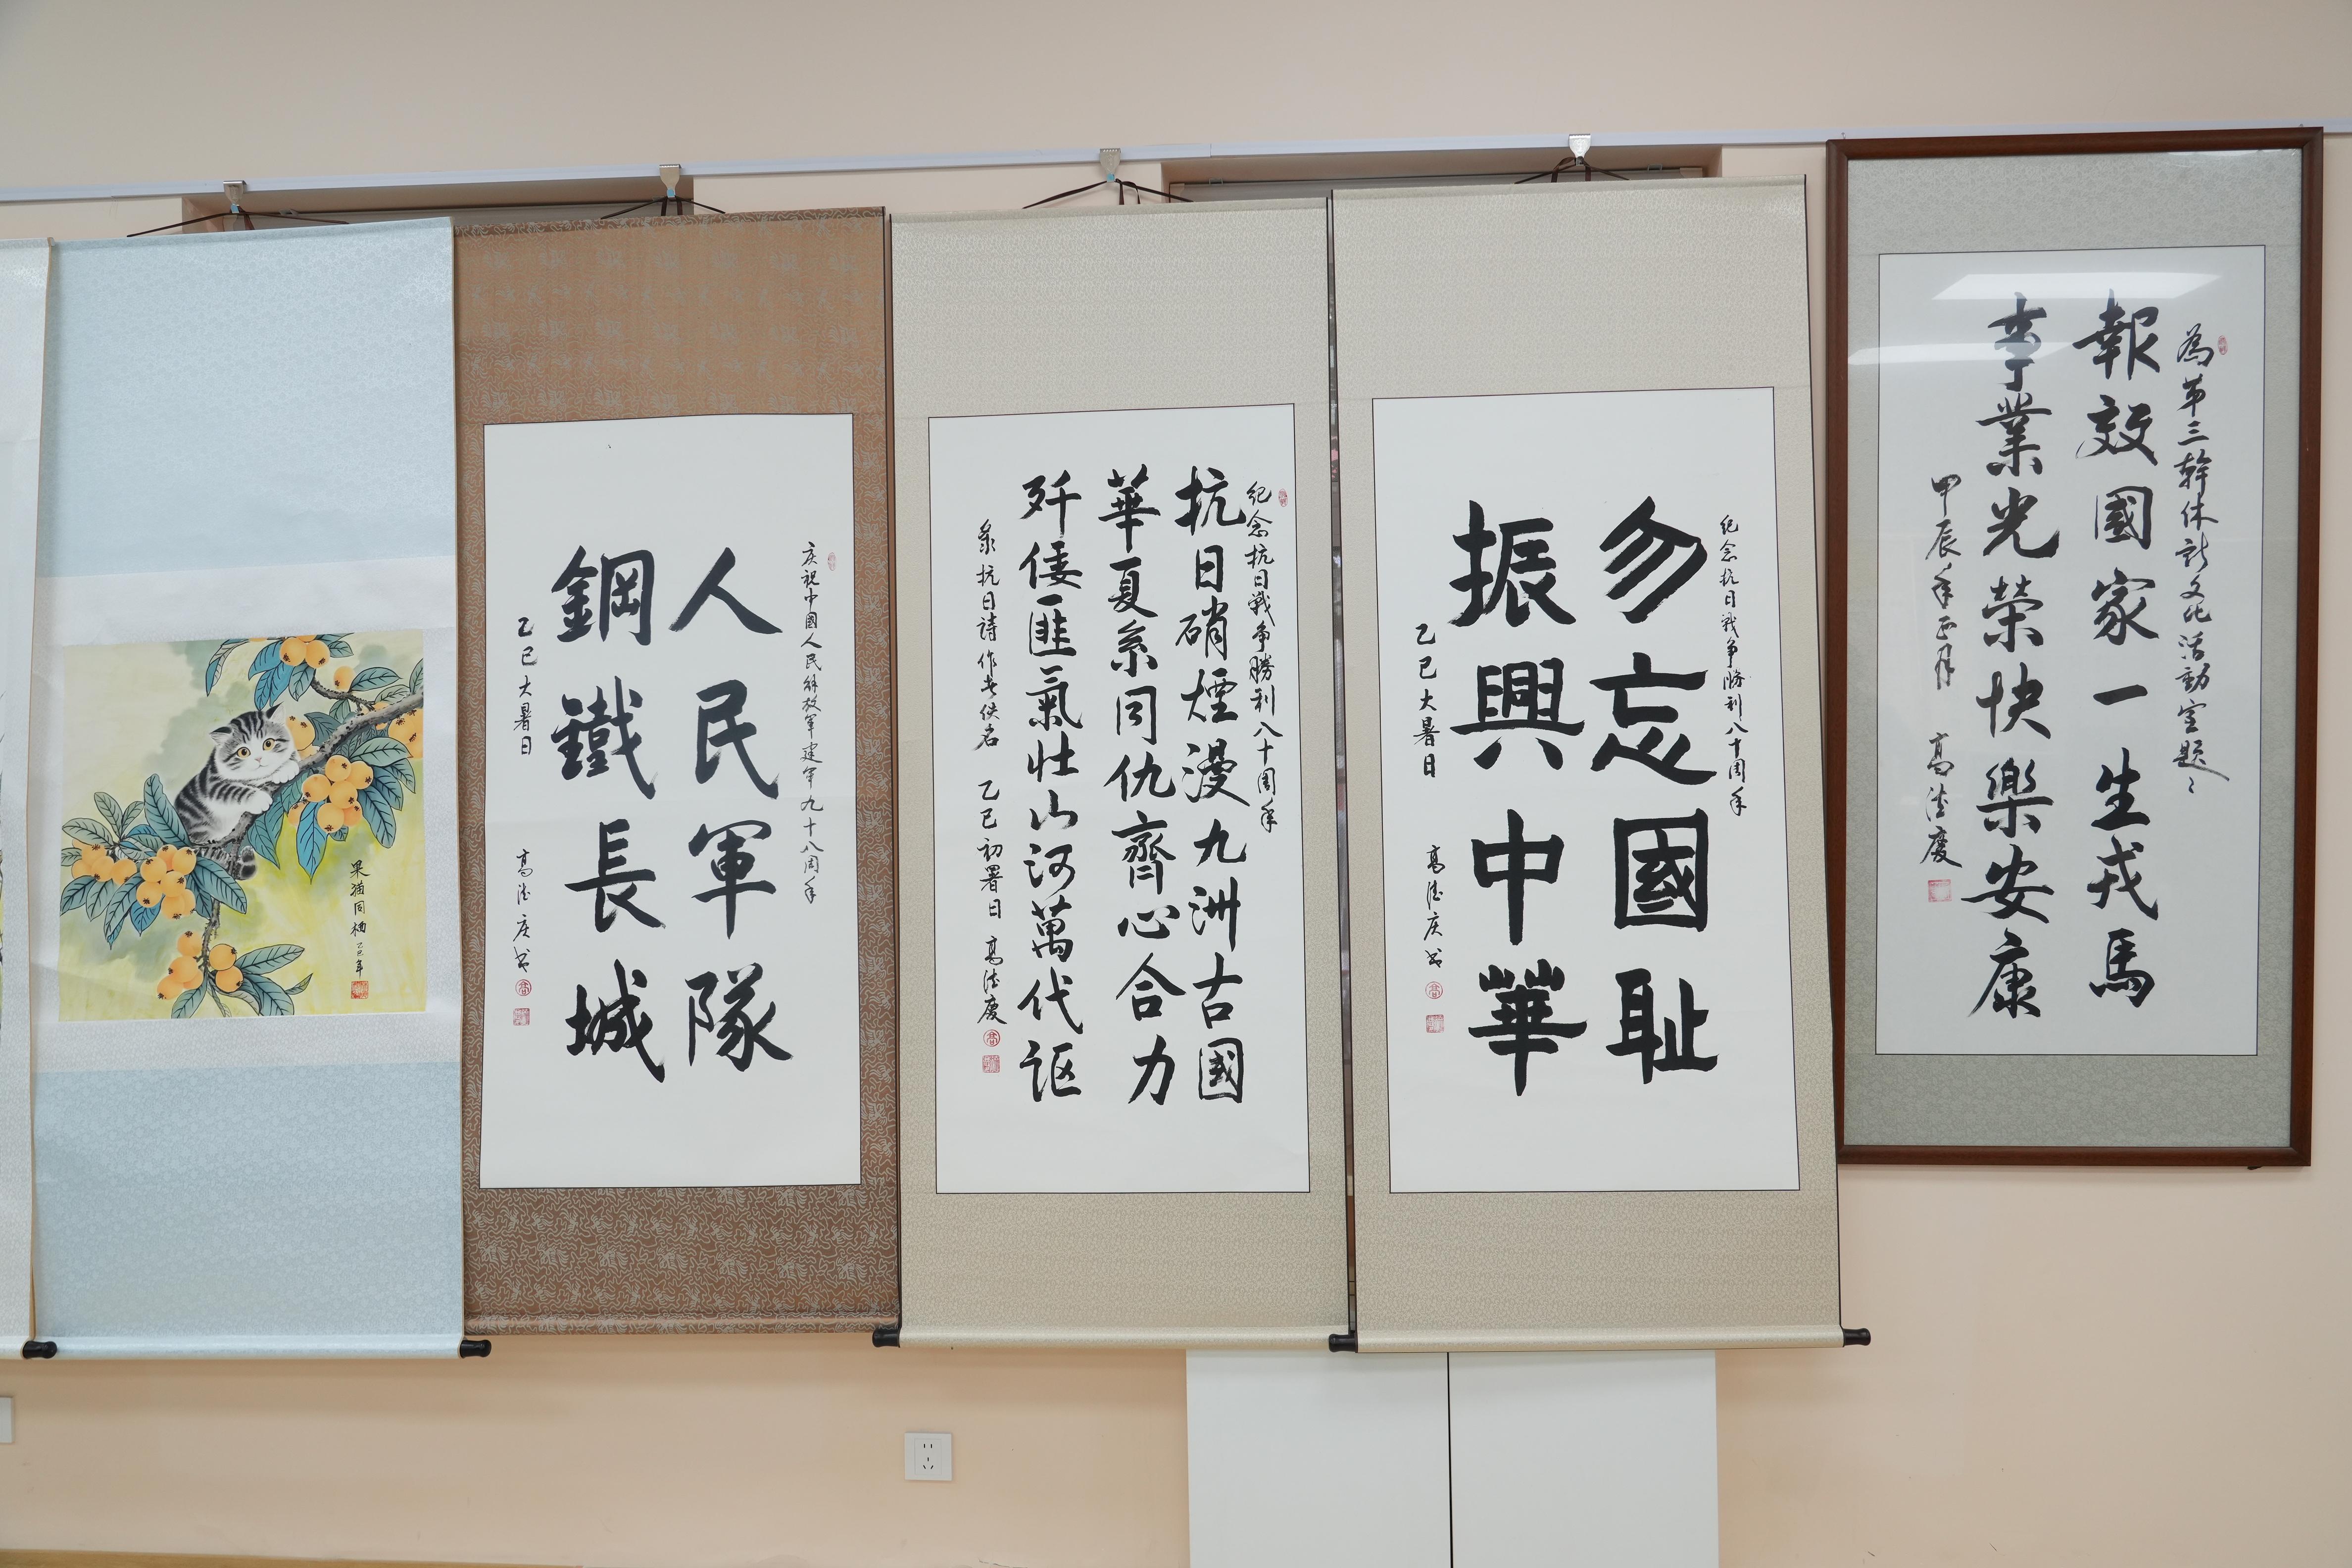 為第三幹休所文化活動室題
報效國家一生戎馬
事業光榮快樂安康
甲辰年正月 高德慶
纪念抗日戰争勝利八十周年
勿忘國耻
振興中華
乙巳大暑日 高德庆书
纪念抗日戰争勝利八十周年
抗日硝煙漫九洲古國
華夏系同仇齊心合力
歼倭匪氣壮山河萬代讴
录抗日詩作者佚名 乙巳初署日 高德慶
庆祝中國人民解放军建军九十八周年
人民軍隊
鋼鐵長城
乙巳大暑日 高德庆书
果猫同栖 乙巳年